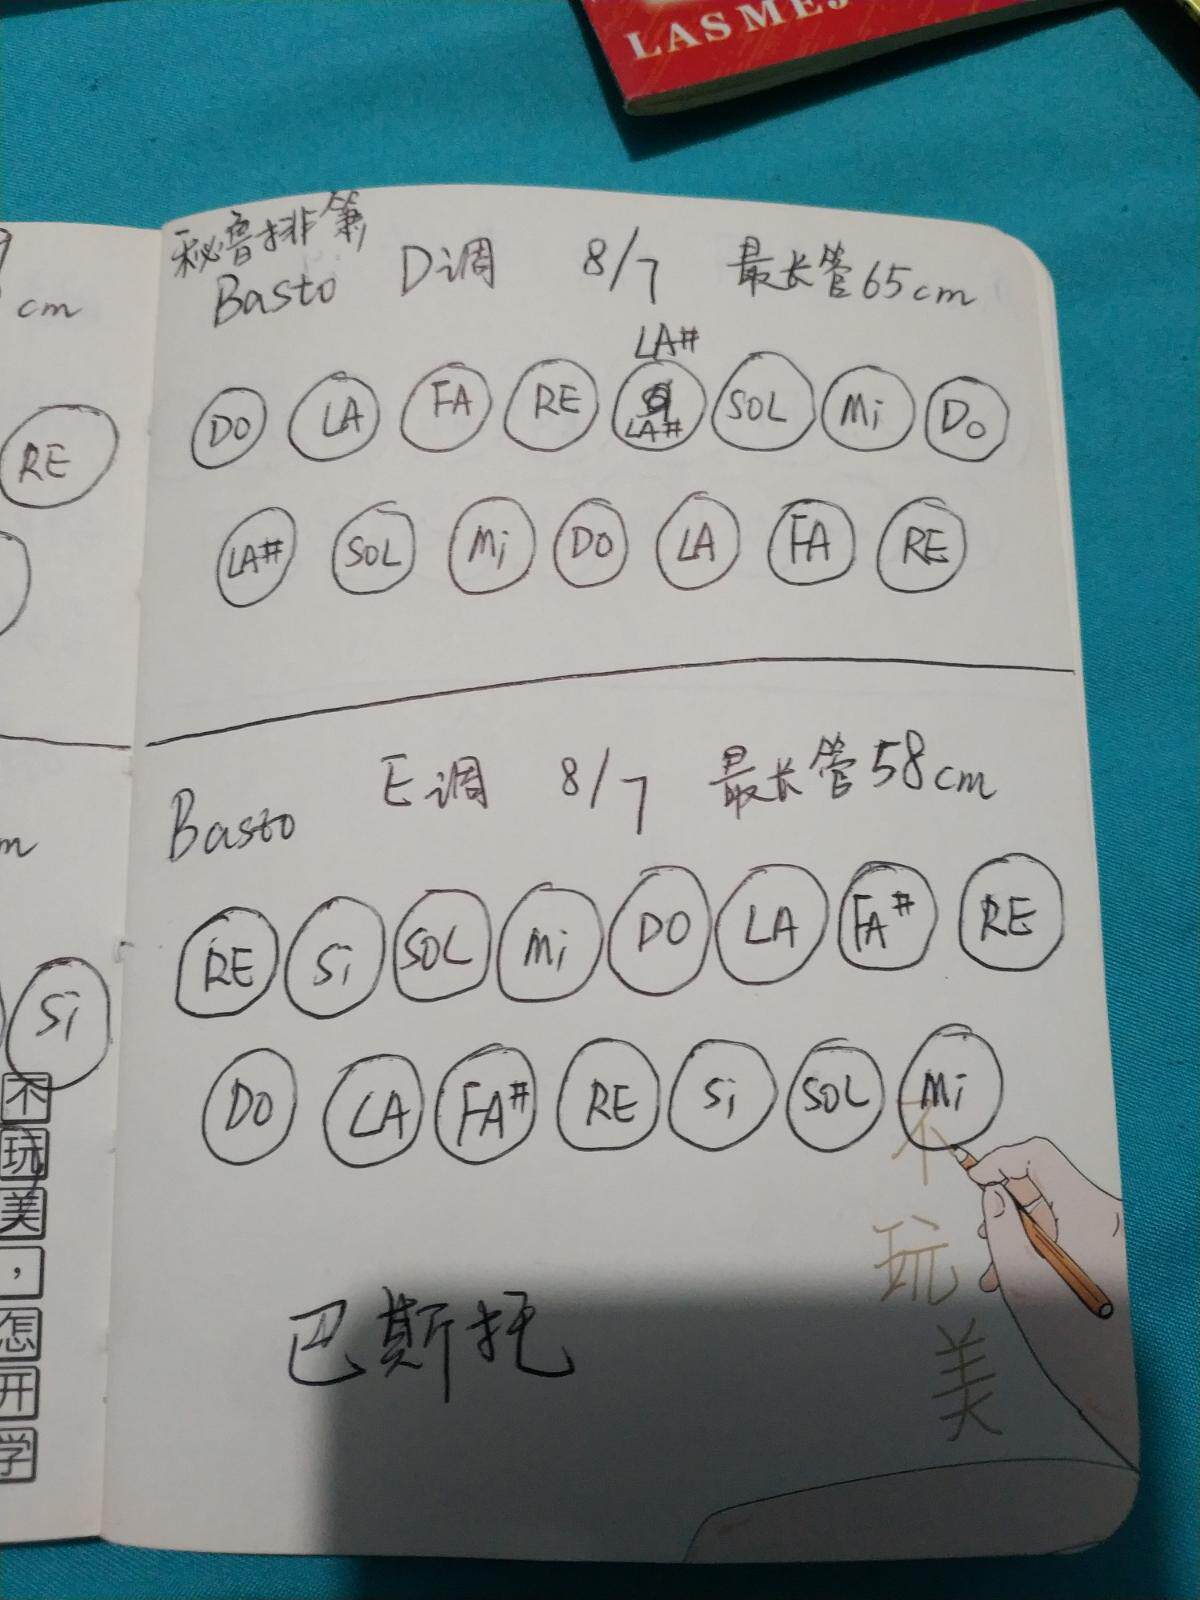 LAS MEJ
cm
RE
m
Si
不
玩
美
，
怎
开
学
秘鲁排箫
Basto D调 8/7 最长管65cm
LA#
DO LA FA RE LA# SOL Mi Do
LA# SOL Mi DO LA FA RE
Basto E调 8/7 最长管58cm
RE Si SOL Mi DO LA FA# RE
DO LA FA# RE Si SOL Mi
巴斯托
不
玩
美